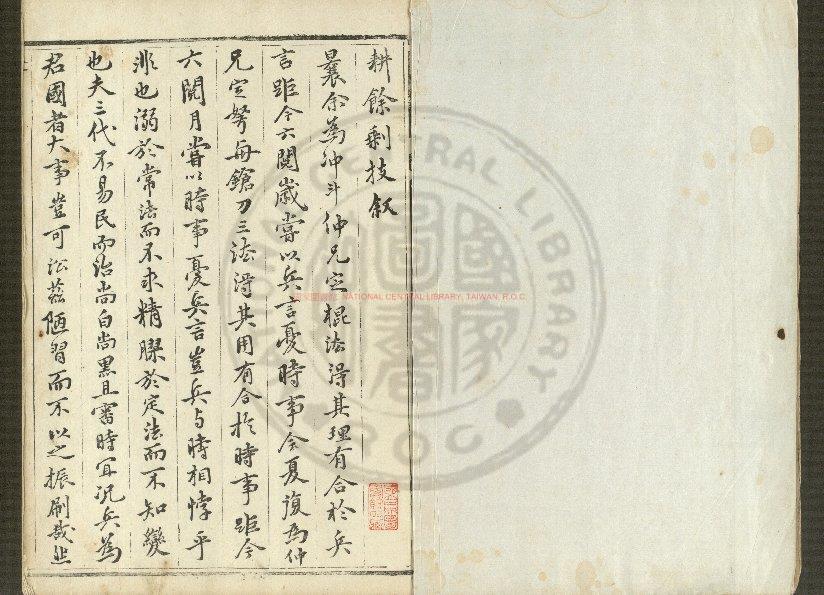 耕餘剩技敘
曩余為沖斗仲兄定棍法得其理有合於兵
言距今六閱歲嘗以兵言憂時事今夏復為仲
兄定弩舟鎗刀三法得其用有合於時事距今
六閱月嘗以時事憂兵言豈兵与時相悖乎
非也溺於常法而不求精膠於定法而不知變
也夫三代不易民而治尚白尚黑且審時宜況兵為
君國者大事豈可沿茲陋習而不以之振刷哉
NATIONAL CENTRAL LIBRARY, TAIWAN, R.O.C.